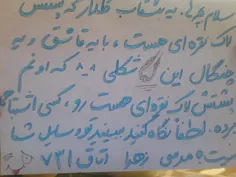 سلام بچه ها، یه بشقاب گلدار که پشتش
لاک نقره ای هست، با یه قاشق و یه
چنگال این شکلی که اونم
پشتش لاک نقره ای هست رو، کسی اشتباه
برده. لطفا نگاه کنید ببینید تو وسایل شما
نیست؟ مدرسی زهرا اتاق ۷۳۱